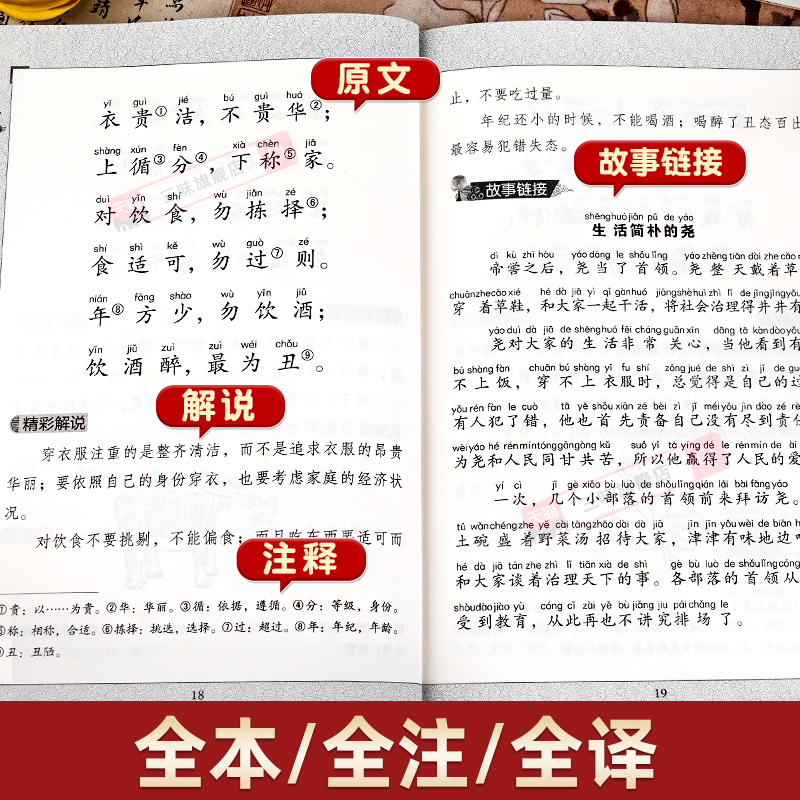 原文
yī guì jié bú guì huá
衣贵①洁，不贵华②；
shàng xún fèn xià chèn jiā
上循③分④，下称⑤家。
duì yǐn shí wù jiǎn zé
对饮食，勿拣择⑥；
shí shì kě wù guò zé
食适可，勿过⑦则。
nián fāng shào wù yǐn jiǔ
年⑧方少，勿饮酒；
yǐn jiǔ zuì zuì wéi chǒu
饮酒醉，最为丑⑨。
解说
精彩解说
穿衣服注重的是整齐清洁，而不是追求衣服的昂贵
华丽；要依照自己的身份穿衣，也要考虑家庭的经济状
况。
对饮食不要挑剔，不能偏食；而且吃东西要适可而
注释
①贵：以……为贵。②华：华丽。③循：依据，遵循。④分：等级，身份。
⑤称：相称，合适。⑥拣择：挑选，选择。⑦过：超过。⑧年：年纪，年龄。
⑨丑：丑陋。
18
止，不要吃过量。
年纪还小的时候，不能喝酒；喝醉了丑态百出
最容易犯错失态。
故事链接
故事链接
shēng huó jiǎn pǔ de yáo
生活简朴的尧
dì kù zhī hòu yáo dāng le shǒu lǐng yáo zhěng tiān dài zhe cǎo
帝喾之后，尧当了首领。尧整天戴着草
chuān zhe cǎo xié hé dà jiā yì qǐ gàn huó jiāng shè huì zhì lǐ de jǐng jǐng yǒu
穿着草鞋，和大家一起干活，将社会治理得井井有
yáo duì dà jiā de shēng huó fēi cháng guān xīn dāng tā kàn dào yǒu
尧对大家的生活非常关心，当他看到有
bú shàng fàn chuān bú shàng yī fu shí zǒng jué de shì zì jǐ de guò
不上饭，穿不上衣服时，总觉得是自己的过
yǒu rén fàn le cuò tā yě shǒu xiān zé bèi zì jǐ méi yǒu jìn dào zé rèn
有人犯了错，他也首先责备自己没有尽到责任
wèi yáo hé rén mín tóng gān gòng kǔ suǒ yǐ tā yíng dé le rén mín de ài
为尧和人民同甘共苦，所以他赢得了人民的爱
yí cì jǐ gè xiǎo bù luò de shǒu lǐng qián lái bài fǎng yáo
一次，几个小部落的首领前来拜访尧。
tǔ wǎn chéng zhe yě cài tāng zhāo dài dà jiā jīn jīn yǒu wèi de biān h
土碗盛着野菜汤招待大家，津津有味地边喝
hé dà jiā tán zhe zhì lǐ tiān xià de shì gè bù luò de shǒu lǐng cóng
和大家谈着治理天下的事。各部落的首领从
shòu dào jiào yù cóng cǐ zài yě bù jiǎng jiu pái chǎng le
受到教育，从此再也不讲究排场了。
19
全本/全注/全译